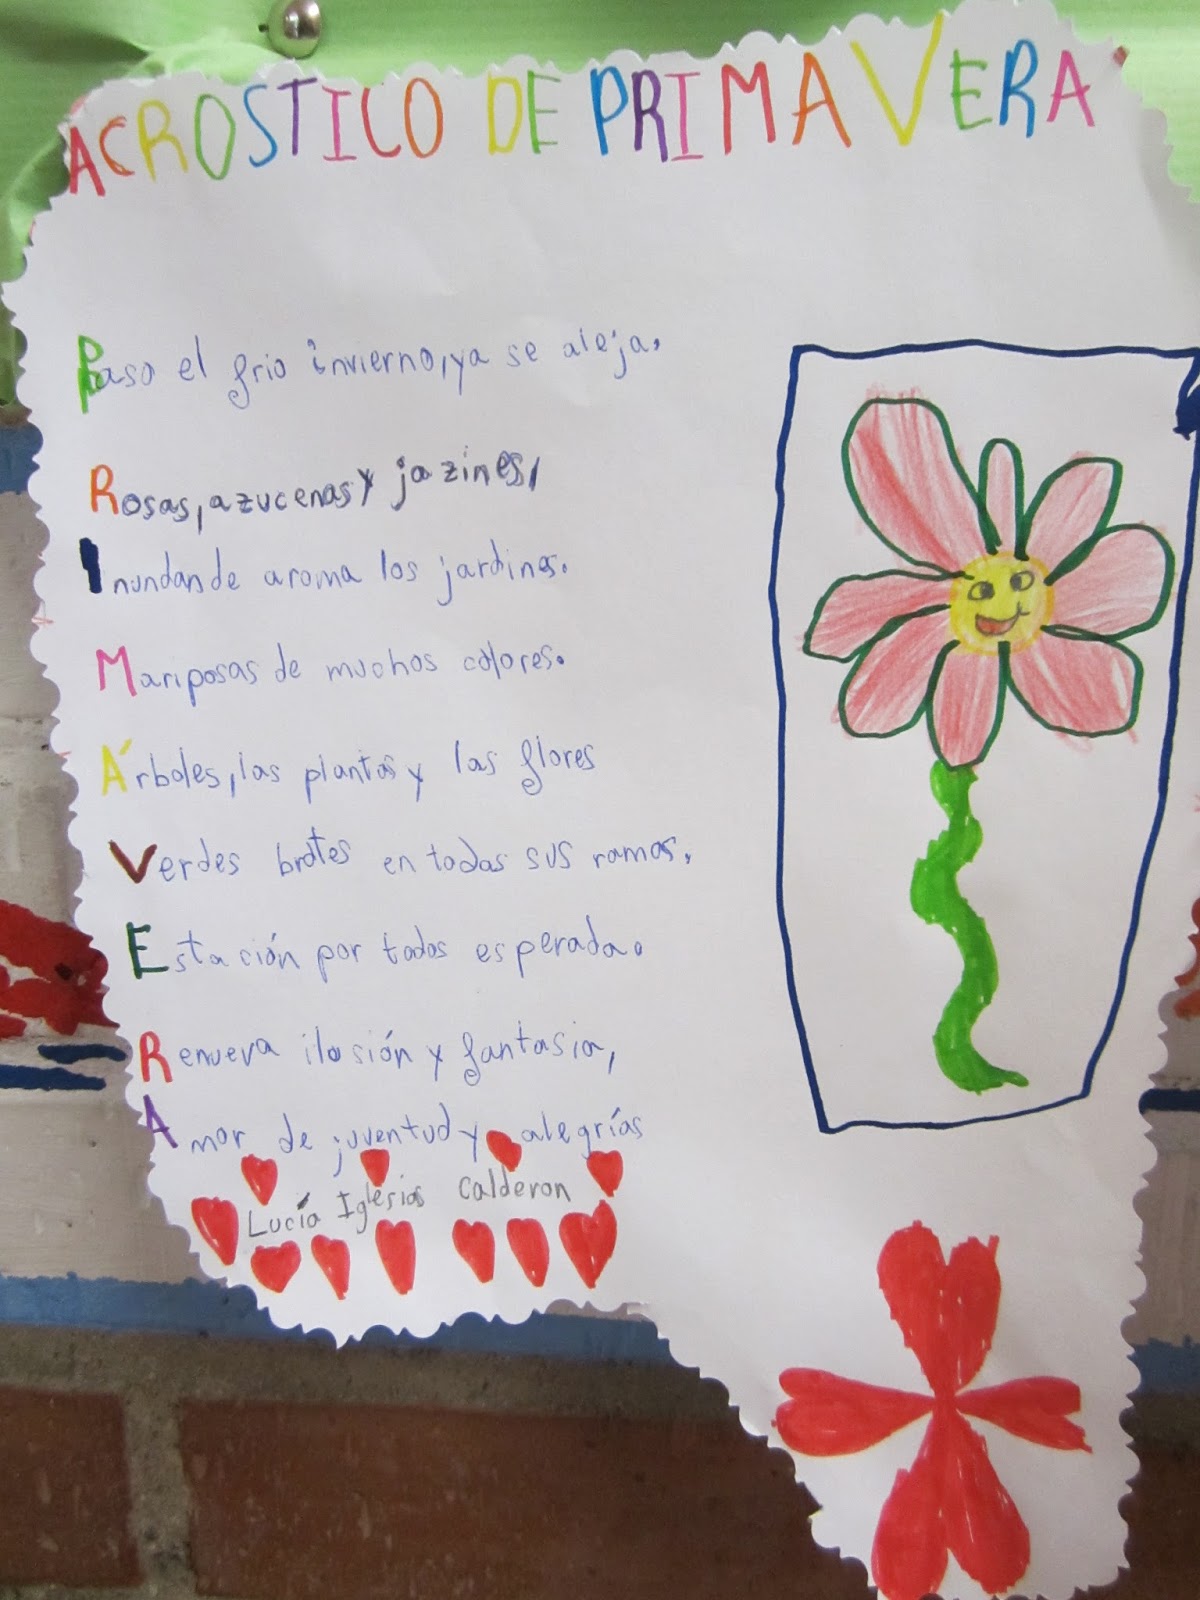 ACROSTICO DE PRIMAVERA
Paso el frio invierno, ya se aleja.
Rosas, azucenas y jazines,
Inundan de aroma los jardines.
Mariposas de muchos colores.
Árboles, las plantas y las flores
Verdes brotes en todas sus ramas.
Estación por todos esperada.
Renueva ilusión y fantasia,
Amor de juventud y alegrías
Lucía Iglesias Calderon